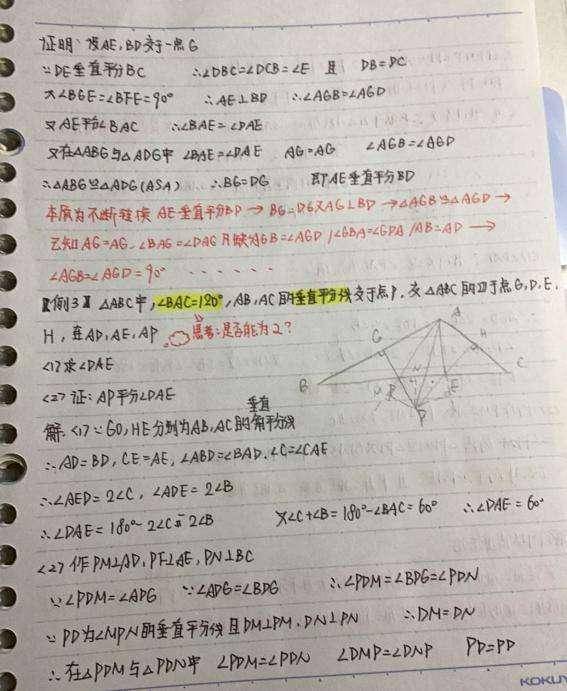 证明: 设AE,BD交于一点G
∵DE垂直平分BC ∴∠DBC=∠DCB=∠E 且 DB=DC
又∠BGE=∠BFE=90° ∴AE⊥BD ∴∠AGB=∠AGD
又AE平分∠BAC ∴∠BAE=∠DAE
又在△ABG与△ADG中 ∠BAE=∠DAE AG=AG ∠AGB=∠AGD
∴△ABG≌△ADG(ASA) ∴BG=DG 即AE垂直平分BD
本质为不断转换 AE垂直平分BD → BG=DG又AG⊥BD → △AGB≌△AGD →
已知AG=AG, ∠BAG=∠DAG 只缺∠AGB=∠AGD/∠GBA=∠GDA/AB=AD →
∠AGB=∠AGD=90° ······
【例3】△ABC中,∠BAC=120°,AB,AC的垂直平分线交于点P,交△ABC的边于点G,D,E,
H,连AD,AE,AP 思考:是否能为2?
<1>求∠DAE
<2>证:AP平分∠DAE
垂直
解.<1>∵GD,HE分别为AB,AC的角平分线
∴AD=BD,CE=AE,∠ABD=∠BAD.∠C=∠CAE
∴∠AED=2∠C,∠ADE=2∠B
∴∠DAE=180°-2∠C-2∠B 又∠C+∠B=180°-∠BAC=60° ∴∠DAE=60°
<2>作PM⊥AD,PF⊥AE,PN⊥BC
∵∠PDM=∠ADG ∵∠ADG=∠BDG ∴∠PDM=∠BDG=∠PDN
∵PD为∠MPN的垂直平分线且DM⊥PM,DN⊥PN ∴DM=DN
∴在△PDM与△PDN中 ∠PDM=∠PDN ∠DMP=∠DNP PD=PD
A
G
H
B
D
E
C
M
N
P
KOKUY